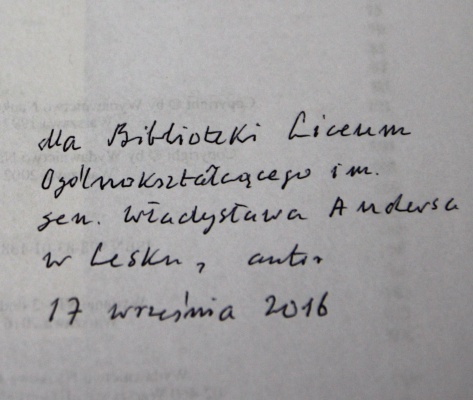 dla Biblioteki Liceum
Ogólnokształcącego im.
gen. Władysława Andersa
w Lesku, autor
17 września 2016